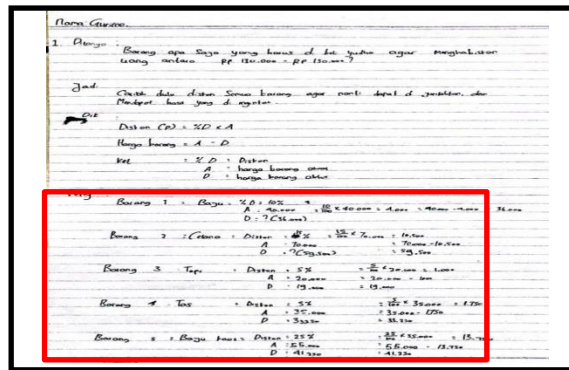 1. Ditanya : Barang apa saja yang harus di beli Yudha agar menghabiskan
uang antara Rp 130.000 - Rp 150.000?
Jad
dulu diskon semua barang agar nanti dapat di jumlahkan, dan
yang di
Dit :
Diskon (P) = %D x A
Harga barang = A - D
Ket : % D = Diskon
A = harga barang awal
D = harga barang akhir
Barang 1 : Baju = % D : 10%
A : 40.000 = 10/100 x 40.000 = 4.000 = 40.000 - 4.000 = 36.000
D : ? (36.000)
Barang 2 : Celana = Diskon = 15% = 15/100 x 70.000 = 10.500
A = 70.000 = 70.000 - 10.500
D = ? (59.500) = 59.500
Barang 3 Topi = Diskon = 5% = 5/100 x 20.000 = 1.000
A = 20.000 = 20.000 -
D = 19.000 = 19.000
Barang 4 Tas = Diskon = 5% = 5/100 x 35.000 = 1.750
A = 35.000 = 35.000 - 1750
D = 33.250 = 33.250
Barang 5 : Baju kaos = Diskon = 25% = 25/100 x 55.000 = 13.750
A = 55.000 = 55.000 - 13.750
D = 41.250 = 41.250